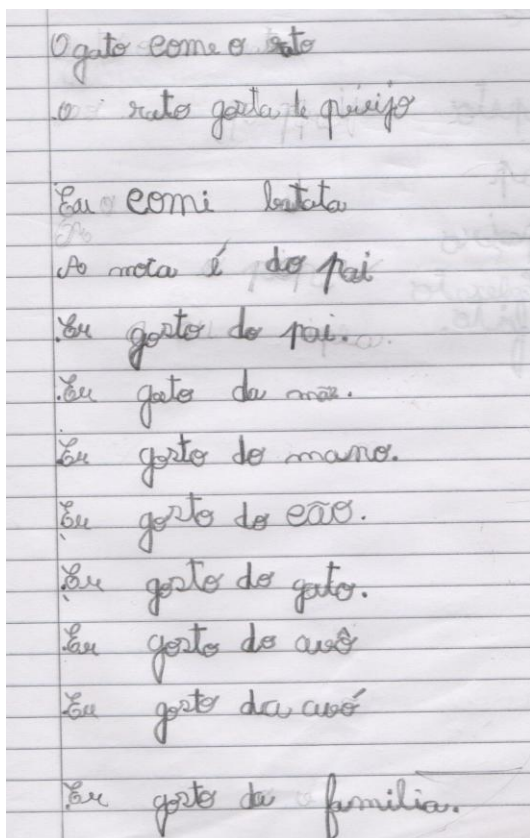 O gato come o rato
o rato gosta de queijo
Eu comi batata
A mota é do pai
Eu gosto do pai.
Eu gato da mãe.
Eu gosto do mano.
Eu gosto do cão.
Eu gosto do gato.
Eu gosto do avô
Eu gosto da avó
Eu gosto da familia.